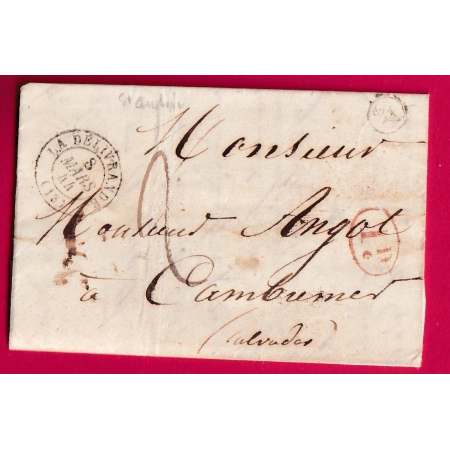 LA DÉLIVRANDE
8
MARS
44
(13)
Monsieur
2
Monsieur Angot
à Cambremer
(Calvados)